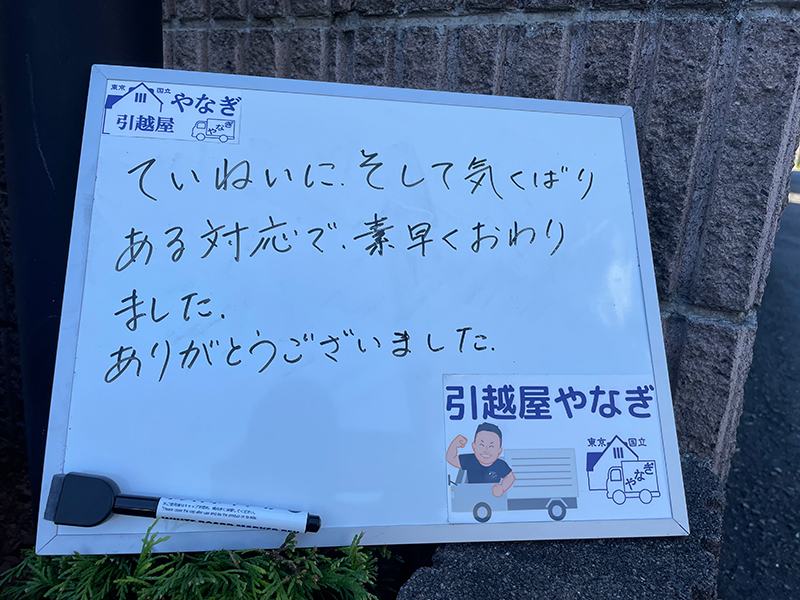 東京 国立
やなぎ
引越屋
やなぎ
ていねいに、そして気くばり
ある対応で、素早くおわり
ました.
ありがとうございました.
引越屋やなぎ
東京 国立
やなぎ